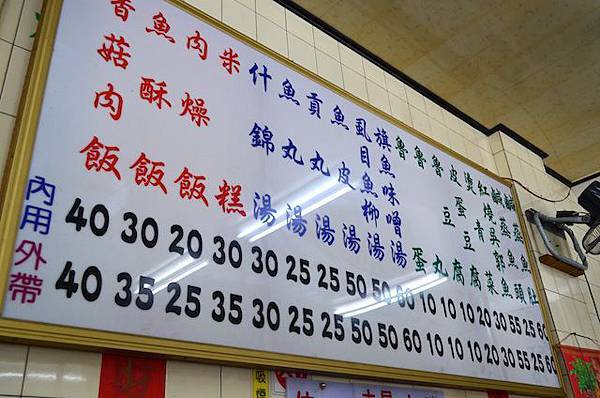 香菇肉飯
魚酥飯
肉燥飯
米糕
什錦湯
魚丸湯
貢丸湯
魚皮湯
虱目魚柳湯
旗魚味噌湯
魯蛋
魯丸
魯豆腐
皮蛋豆腐
燙青菜
紅燒吳郭魚
鹹蒸魚頭
鹹蒸魚
內用 40 30 20 30 30 25 25 50 50 60 10 10 10 20 30 55 25 60
外帶 40 35 25 35 30 25 25 50 50 60 10 10 10 20 30 55 25 60